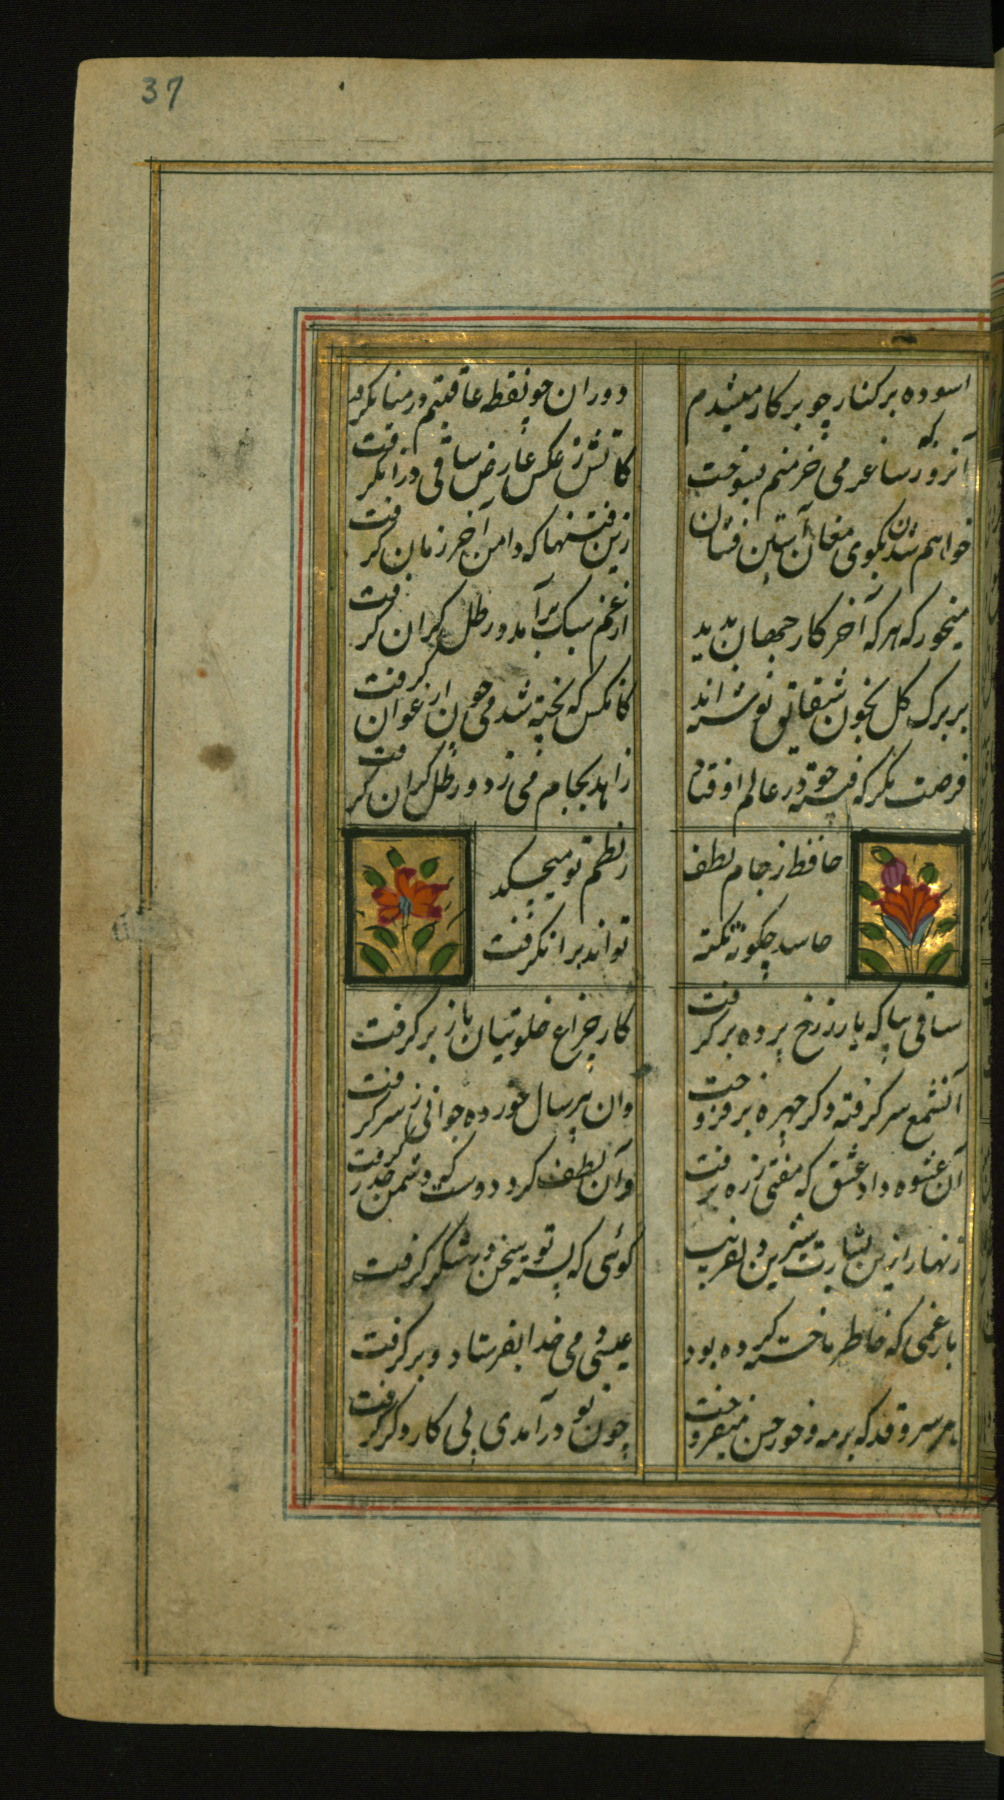 37
اسوده بر کنار چو پرکار میشدم
دوران چو نقطه عاقبتم در میان گرفت
آنروز که ساغر می خرمنم بسوخت
کاتش ز عکس عارض ساقی در ان گرفت
خواهم شدن بکوی مغان آستین فشان
زین فتنها که دامن آخر زمان گرفت
میخور که هر که آخر کار جهان بدید
از غم سبک برآمد و رطل گران گرفت
بر برک گل بخون شقایق نوشته اند
کانکس که پخته شد می چون ارغوان گرفت
فرصت نگر که فتنه چو در عالم اوفتاد
زاهد بجام می زد و رطل گران گرفت
حافظ ز جام لطف
ز نظم تو میچکد
حاسد چگونه نکته
تواند بران گرفت
ساقی بیا که یار ز رخ پرده بر گرفت
کار چراغ خلوتیان باز بر گرفت
آنشمع سر گرفته دگر چهره بر فروخت
وان پیر سال خورده جوانی ز سر گرفت
آن عشوه داد عشق که مفتی ز ره برفت
وآن لطف کرد دوست که دشمن حذر گرفت
زنهار ازین عبارت شیرین دلفریب
گوئی که پسته تو سخن در شکر گرفت
بار غمی که خاطر ما خسته کرده بود
عیسی دمی خدا بفرستاد و بر گرفت
هر سرو قد که بر مه و خور حسن میفروخت
چون تو درآمدی پی کار دگر گرفت